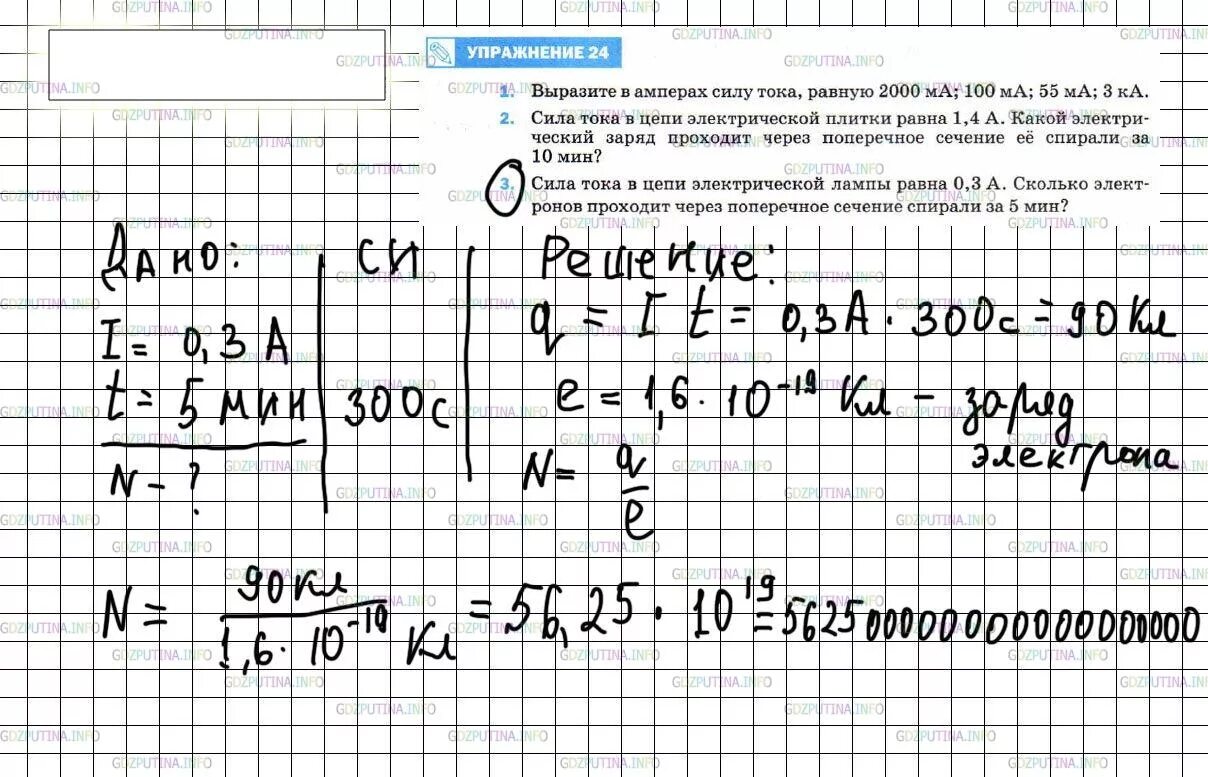 УПРАЖНЕНИЕ 24
1. Выразите в амперах силу тока, равную 2000 мА; 100 мА; 55 мА; 3 кА.
2. Сила тока в цепи электрической плитки равна 1,4 А. Какой электри-
ческий заряд проходит через поперечное сечение её спирали за
10 мин?
3. Сила тока в цепи электрической лампы равна 0,3 А. Сколько элект-
ронов проходит через поперечное сечение спирали за 5 мин?
Дано: СИ Решение:
I = 0,3 А
t = 5 мин 300с
N - ?
q = I t = 0,3А · 300с = 90 Кл
e = 1,6 · 10⁻¹⁹ Кл – заряд
электрона
N = q/e
N = 90 Кл / 1,6 · 10⁻¹⁹ Кл = 56,25 · 10¹⁹ =
GDZPUTINA.INFO